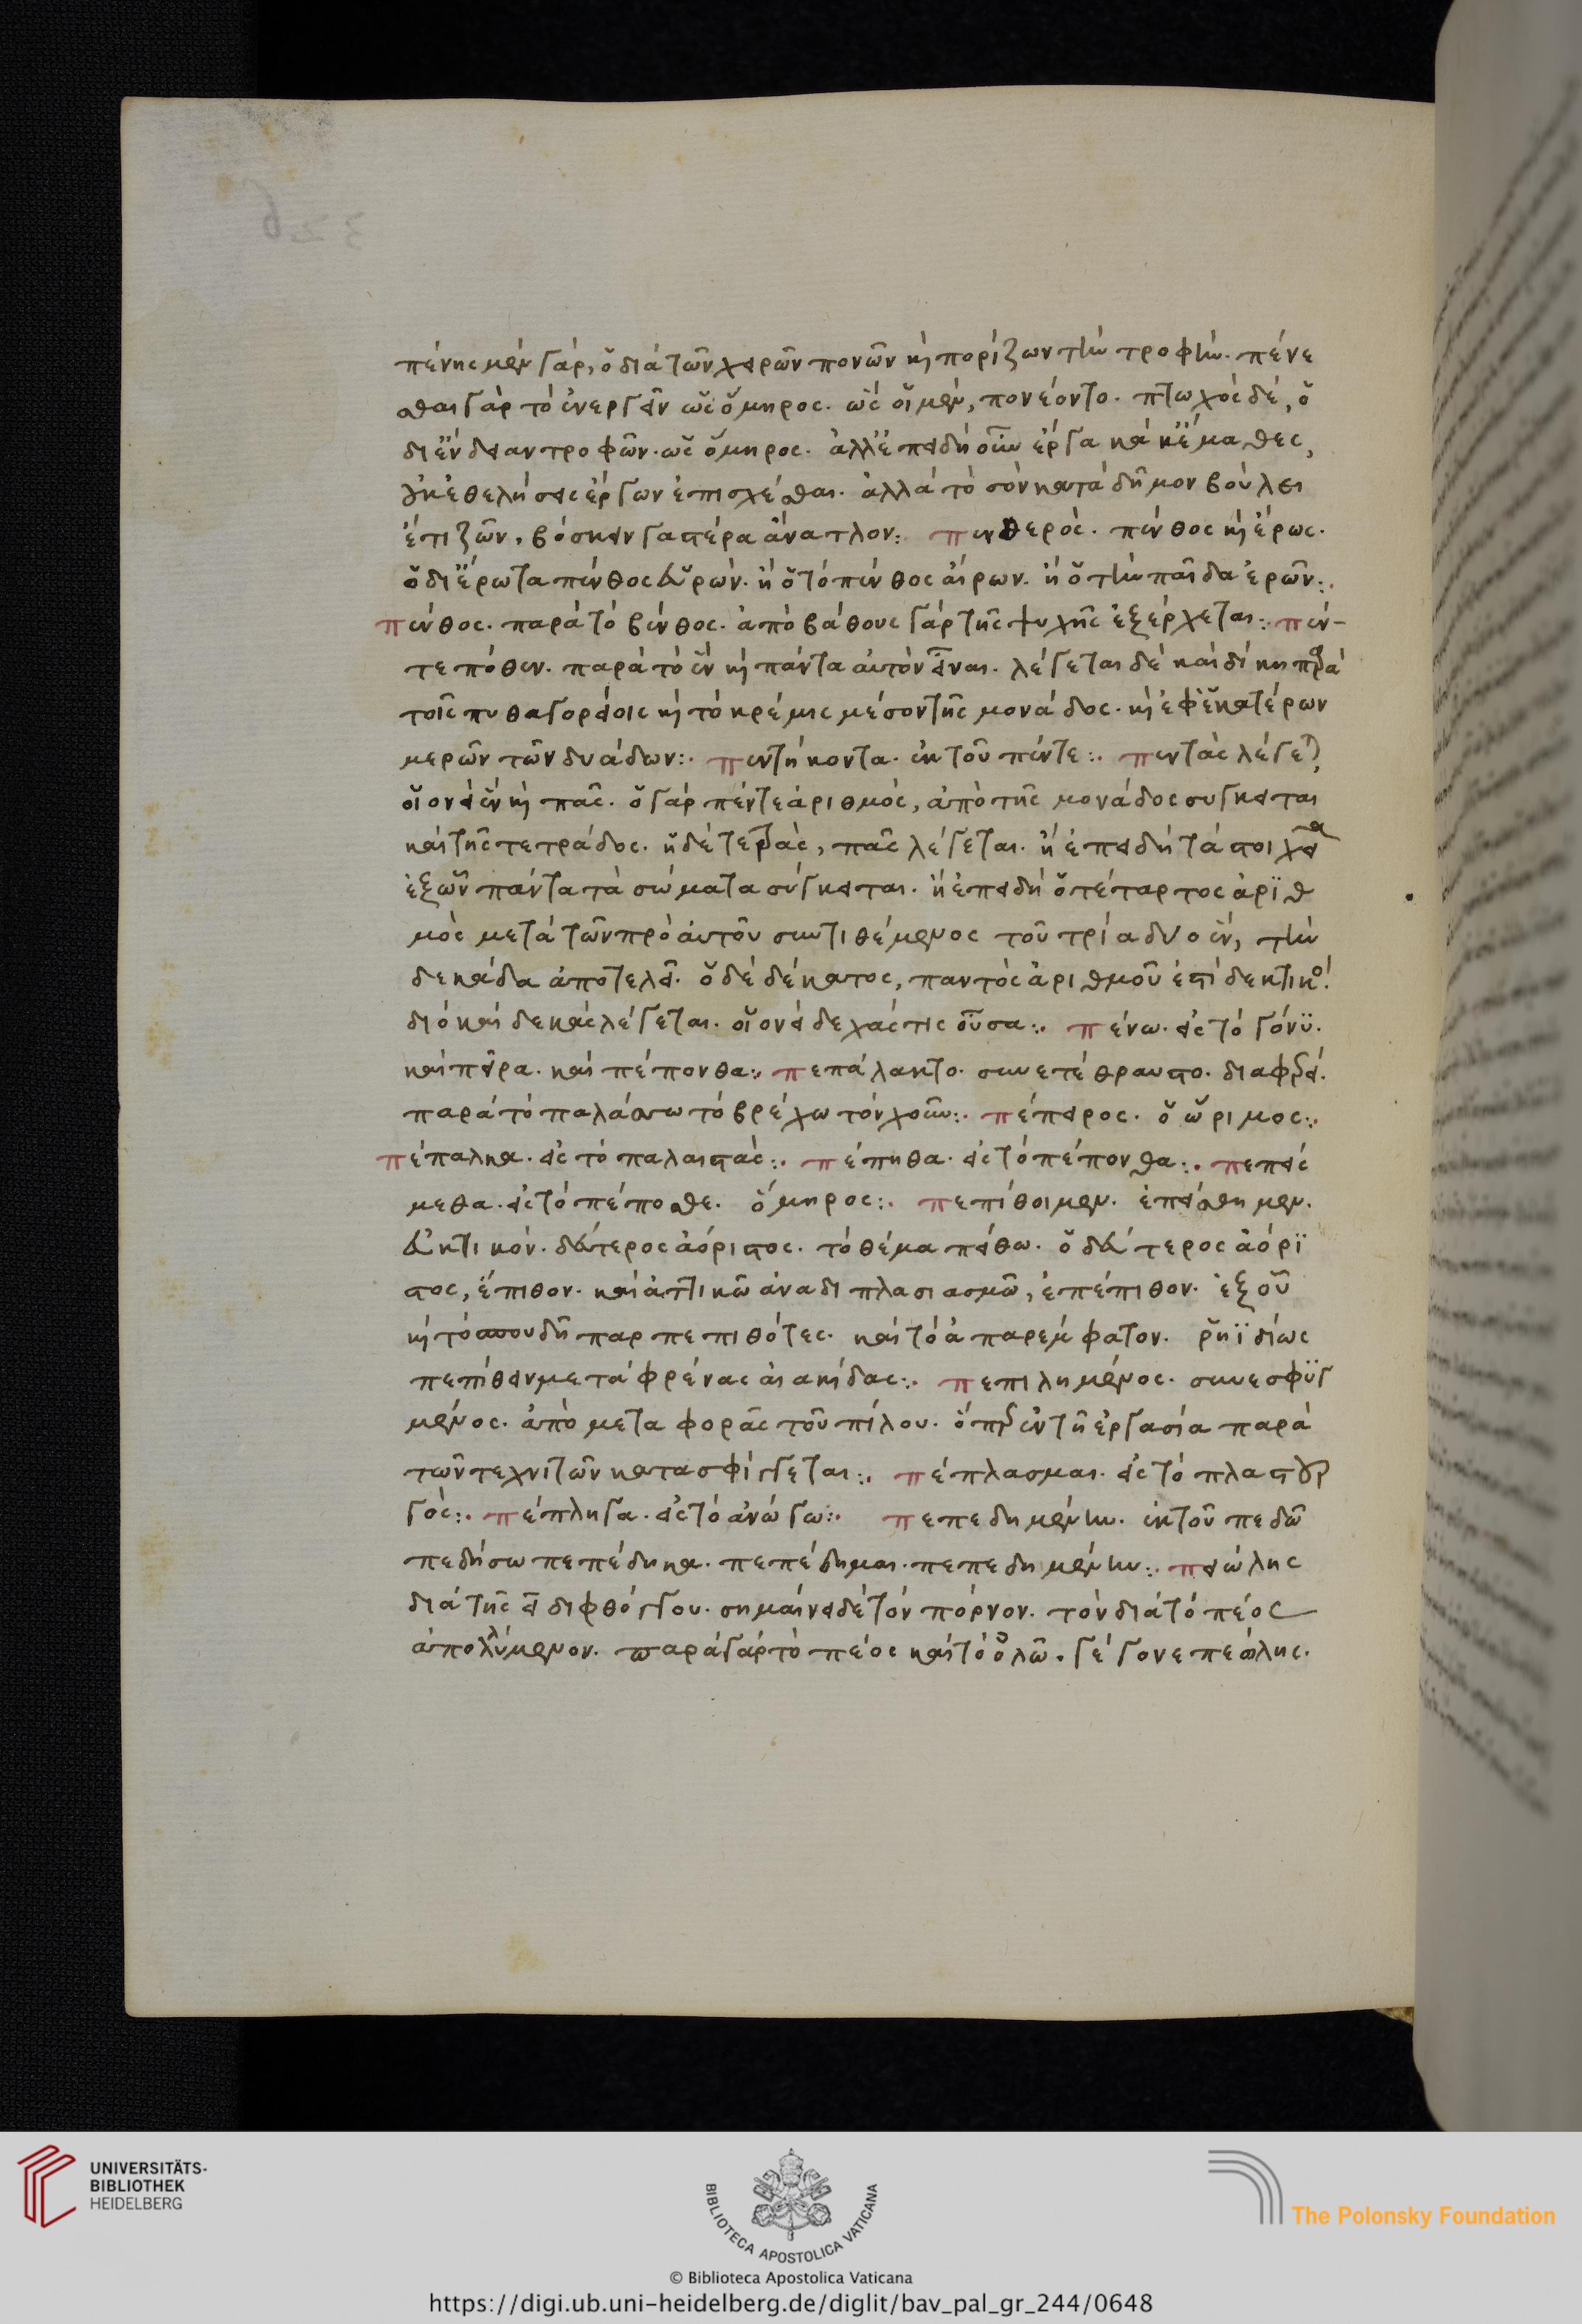 πένης μὲν γάρ, ὁ διὰ τῶν χειρῶν πονῶν κὴ πορίζων τὴν τροφήν. πένε
σθαι γὰρ τὸ ἐνεργεῖν ὡς ὅμηρος. ὡς οἱ μὲν, πονέοντο. πτωχὸς δέ, ὁ
δι ἔνδειαν τροφῶν. ὡς ὅμηρος. ἀλλ ἐπειδὴ οὖν ἔργα κακ ἔμαθες,
οὐκ ἐθελήσεις ἔργων ἐπισχέσθαι. ἀλλὰ τὸ σὸν κατὰ δῆμον βούλει
ἐτιζῶν, βόσκειν γαστέρα ἄναπλον: πενθερός. πένθος κὴ ἔρως.
ὁ δι ἔρωτα πένθος εὑρών. ἢ ὁ τὸ πένθος αἴρων. ἢ ὁ τὴν παῖδα ἐρῶν:.
πένθος. παρὰ τὸ βένθος. ἀπὸ βάθους γὰρ τῆς ψυχῆς ἐξέρχεται:. πέν-
τε πόθεν. παρὰ τὸ ἓν κὴ πάντα αὐτὸν εἶναι. λέγεται δὲ καὶ δίκη παρὰ
τοῖς πυθαγορείοις κὴ τὸ κρέμις μέσον τῆς μονάδος. κὴ ἐφ ἑκατέρων
μερῶν τῶν δυάδων:. πεντήκοντα. ἐκ τοῦ πέντε:. πεντὰς λέγεται,
οἱονεὶ ἓν κὴ πᾶς. ὁ γὰρ πέντε ἀριθμός, ἀπὸ τῆς μονάδος συγκειται
καὶ τῆς τετράδος. ἡ δὲ τετρὰς, πᾶς λέγεται. ἢ ἐπειδὴ τὰ στοιχεῖα
ἐξ ὧν πάντα τὰ σώματα σύγκειται. ἢ ἐπειδὴ ὁ τέταρτος ἀρϊθ
μὸς μετὰ τῶν πρὸ αὐτοῦ συντιθέμενος τοῦ τρία δύο ἕν, τὴν
δεκάδα ἀποτελεῖ. ὁ δὲ δέκατος, παντὸς ἀριθμοῦ ἐστὶ δεκτικός.
διὸ καὶ δεκὰς λέγεται. οἱονεὶ δεχάς τις οὖσα:. πένω. εἰς τὸ γόνϋ.
καὶ πεῖρα. καὶ πέπονθα:. πεπάλακτο. συνετέθραυστο. διαφέρει.
παρὰ τὸ παλάσσω τὸ βρέχω τὸν χοῦν:. πέπειρος. ὁ ὥριμος:.
πέπαλκα. εἰς τὸ παλαιστὰς:. πέπηθα. εἰς τὸ πέπονθα:. πεπείσ
μεθα. εἰς τὸ πέποσθε. ὅμηρος:. πεπίθοιμεν. ἐπείσθημεν.
εὐκτικόν. δεύτερος ἀόριστος. τὸ θέμα πείθω. ὁ δεύτερος ἀόρϊ
στος, ἔπιθον. καὶ ἀττικῶ ἀναδιπλασιασμῶ, ἐπέπιθον. ἐξ οὗ
κὴ τὸ σπουδῆ παρπεπιθότες. καὶ τὸ ἀπαρεμφατον. ῥηϊδίως
πεπίθειν μετὰ φρένας αἰακίδας:. πεπιλημένος. συνεσφϋγ
μένος. ἀπὸ μεταφορᾶς τοῦ πίλου. ὅπερ ἐν τῆ ἐργασία παρὰ
τῶν τεχνιτῶν κατασφίγγεται:. πέπλασμαι. εἰς τὸ πλαστουρ
γός:. πέπληγα. εἰς τὸ ἀνώγω:. πεπεδημένην. ἐκ τοῦ πεδῶ
πεδήσω πεπέδηκα. πεπέδημαι. πεπεδημένην:. πειώλης
διὰ τῆς ει διφθόγγου. σημαίνει δὲ τὸν πόρνον. τὸν διὰ τὸ πέος
ἀπολλύμενον. παρὰ γὰρ τὸ πέος καὶ τὸ ὀλῶ. γέγονε πεώλης.
UNIVERSITÄTS-
BIBLIOTHEK
HEIDELBERG
BIBLIOTECA APOSTOLICA VATICANA
The Polonsky Foundation
© Biblioteca Apostolica Vaticana
https://digi.ub.uni-heidelberg.de/diglit/bav_pal_gr_244/0648